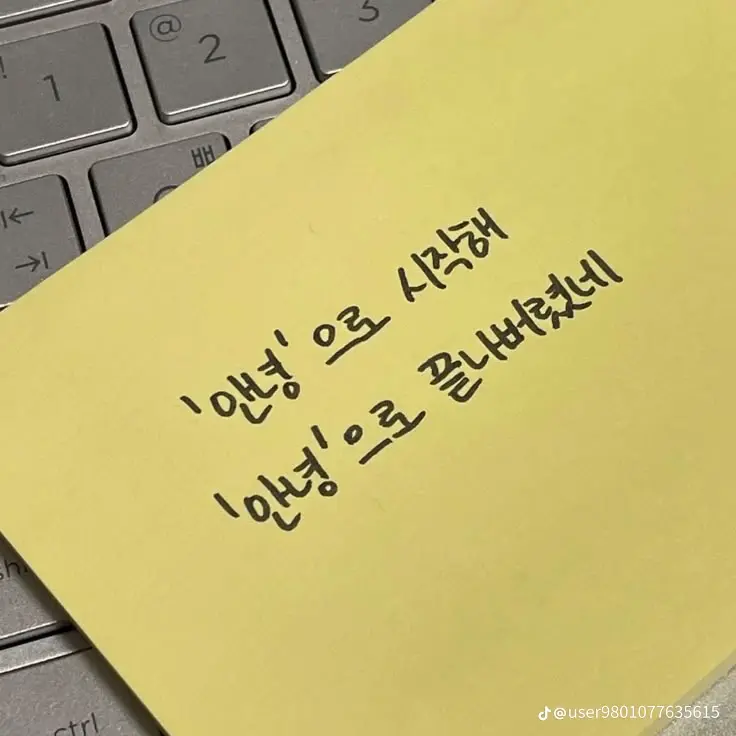 !
1
@
2
3
ㅃ
ㅂ
'안녕'으로 시작해
'안녕'으로 끝나버렸네
sh
ctrl
@user9801077635615